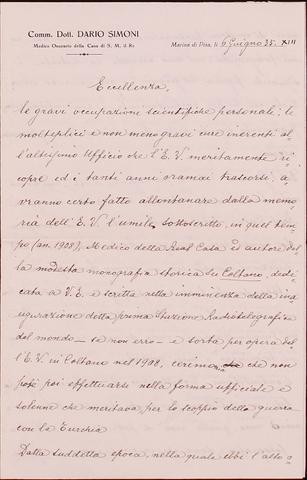 Comm. Dott. DARIO SIMONI
Medico Onorario della Casa di S. M. il Re
Marina di Pisa, li 6 Giugno 35. XIII
Eccellenza,
le gravi occupazioni scientifiche personali; le
molteplici e non meno gravi cure inerenti al
l'altissimo Ufficio che l'E. V. meritamente ri
copre ed i tanti anni oramai trascorsi, a
vranno certo fatto allontanare dalla memo
ria dell'E. V. l'umile sottoscritto, in quel tem
po (an. 1908), Medico della Real Casa ed autore del
la modesta monografia storica su Coltano, dedi
cata a V. E. e scritta nella imminenza della ina
ugurazione della prima Stazione Radiotelegrafica
del mondo - se non erro - e sorta per opera del
l'E. V. in Coltano nel 1908, cerimonia che non
potè poi effettuarsi nella forma ufficiale e
solenne che meritava, per lo scoppio della guerra
con la Turchia
Dalla suddetta epoca, nella quale ebbi l'alto o